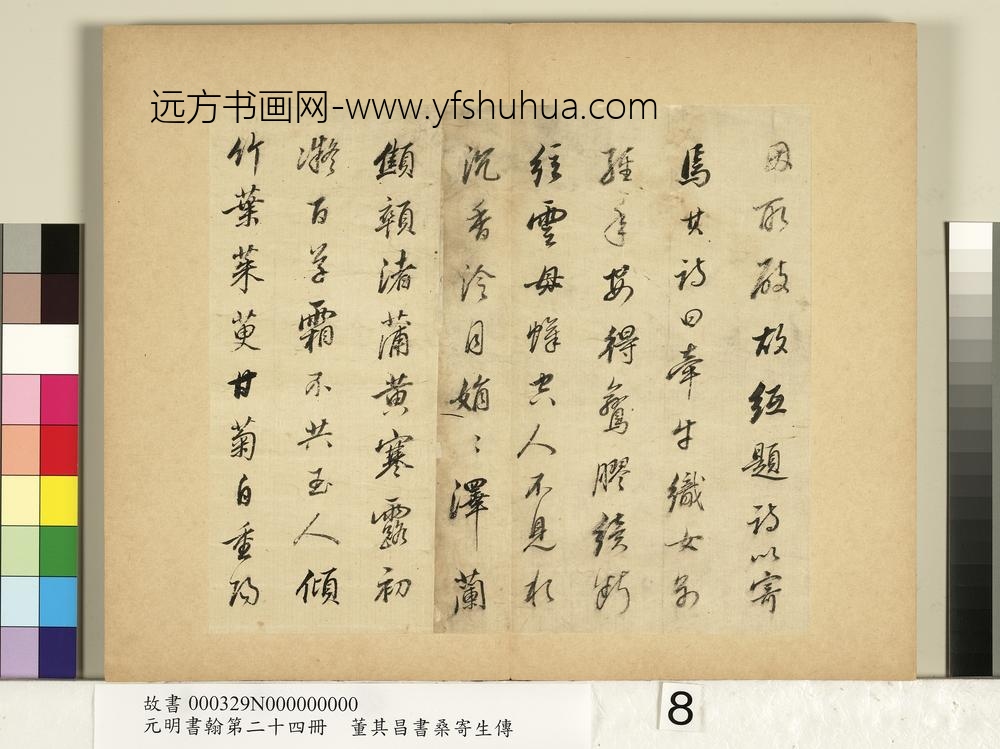 远方书画网-www.yfshuhua.com
因取破故紙題詩以寄
焉其詩曰牽牛織女別
經年安得鸞膠續斷
絃雲母帳空人不見水
沉香冷月娟〻澤蘭
顦顇渚蒲黃寒露初
凝百草霜不共玉人傾
竹葉茱萸甘菊自重陽
故書 000329N000000000
元明書翰第二十四冊 董其昌書桑寄生傳
8